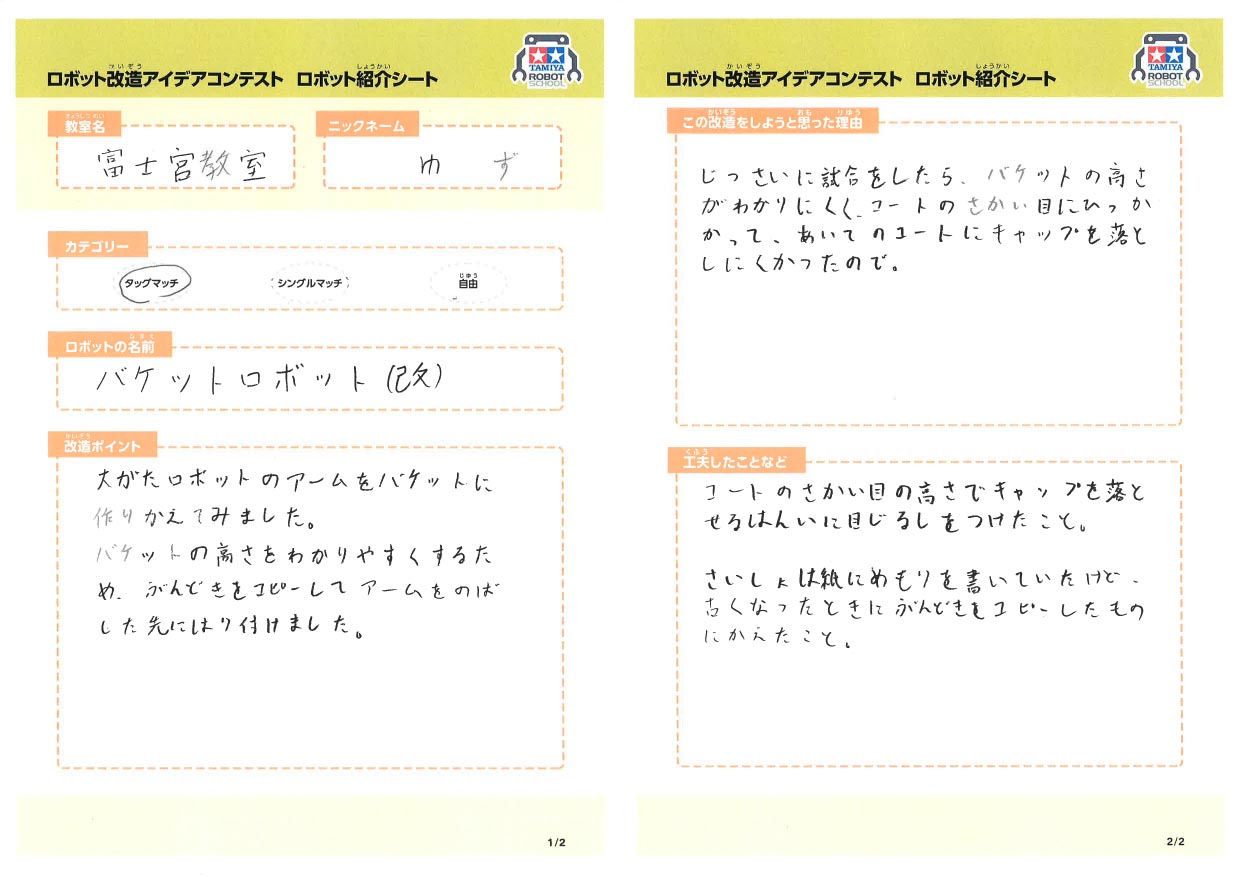 ロボット改造アイデアコンテスト ロボット紹介シート
かいぞう しょうかい
TAMIYA
ROBOT
SCHOOL
教室名
富士宮教室
ニックネーム
ゆず
カテゴリー
タッグマッチ
シングルマッチ
じゆう
自由
ロボットの名前
なまえ
バケットロボット(改)
かいぞう
改造ポイント
大がたロボットのアームをバケットに
作りかえてみました。
バケットの高さをわかりやすくするた
め、ぶんどきをコピーしてアームをのば
した先にはり付けました。
1/2
ロボット改造アイデアコンテスト ロボット紹介シート
かいぞう しょうかい
TAMIYA
ROBOT
SCHOOL
かいぞう おも りゆう
この改造をしようと思った理由
じっさいに試合をしたら、バケットの高さ
がわかりにくく、コートのさかい目にひっか
かって、あいてのコートにキャップを落と
しにくかったので。
くふう
工夫したことなど
コートのさかい目の高さでキャップを落と
せるはんいに目じるしをつけたこと。
さいしょは紙にめもりを書いていたけど、
古くなったときにぶんどきをコピーしたもの
にかえたこと。
2/2